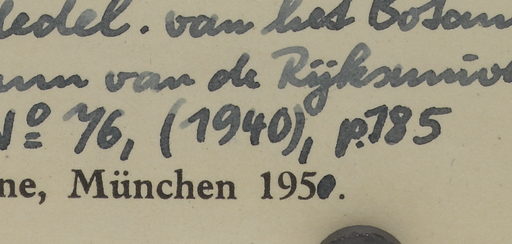 Medel. van het Botan
van de Rijksuniv
Nº 76, (1940), p.785
ne, München 1950.